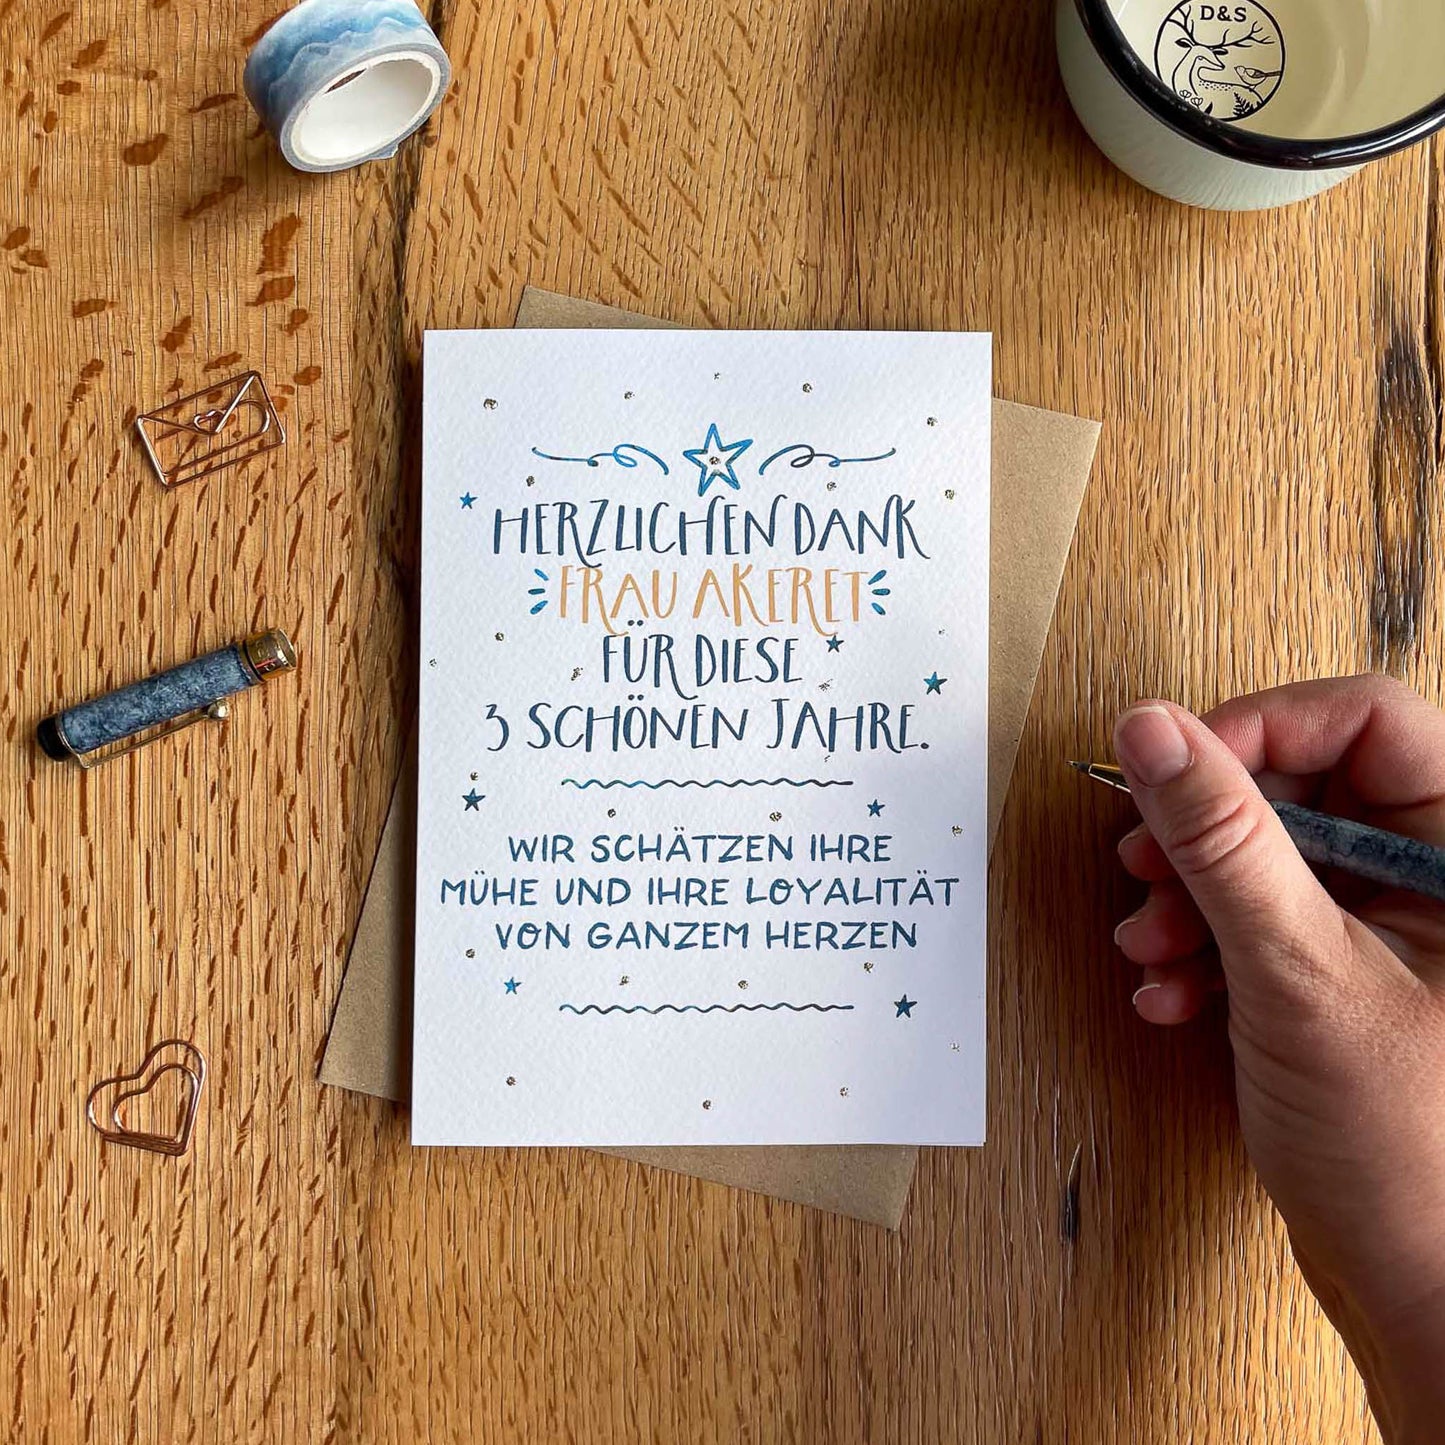 D&S
HERZLICHEN DANK
FRAU AKERET
FÜR DIESE
3 SCHÖNEN JAHRE.
WIR SCHÄTZEN IHRE
MÜHE UND IHRE LOYALITÄT
VON GANZEM HERZEN